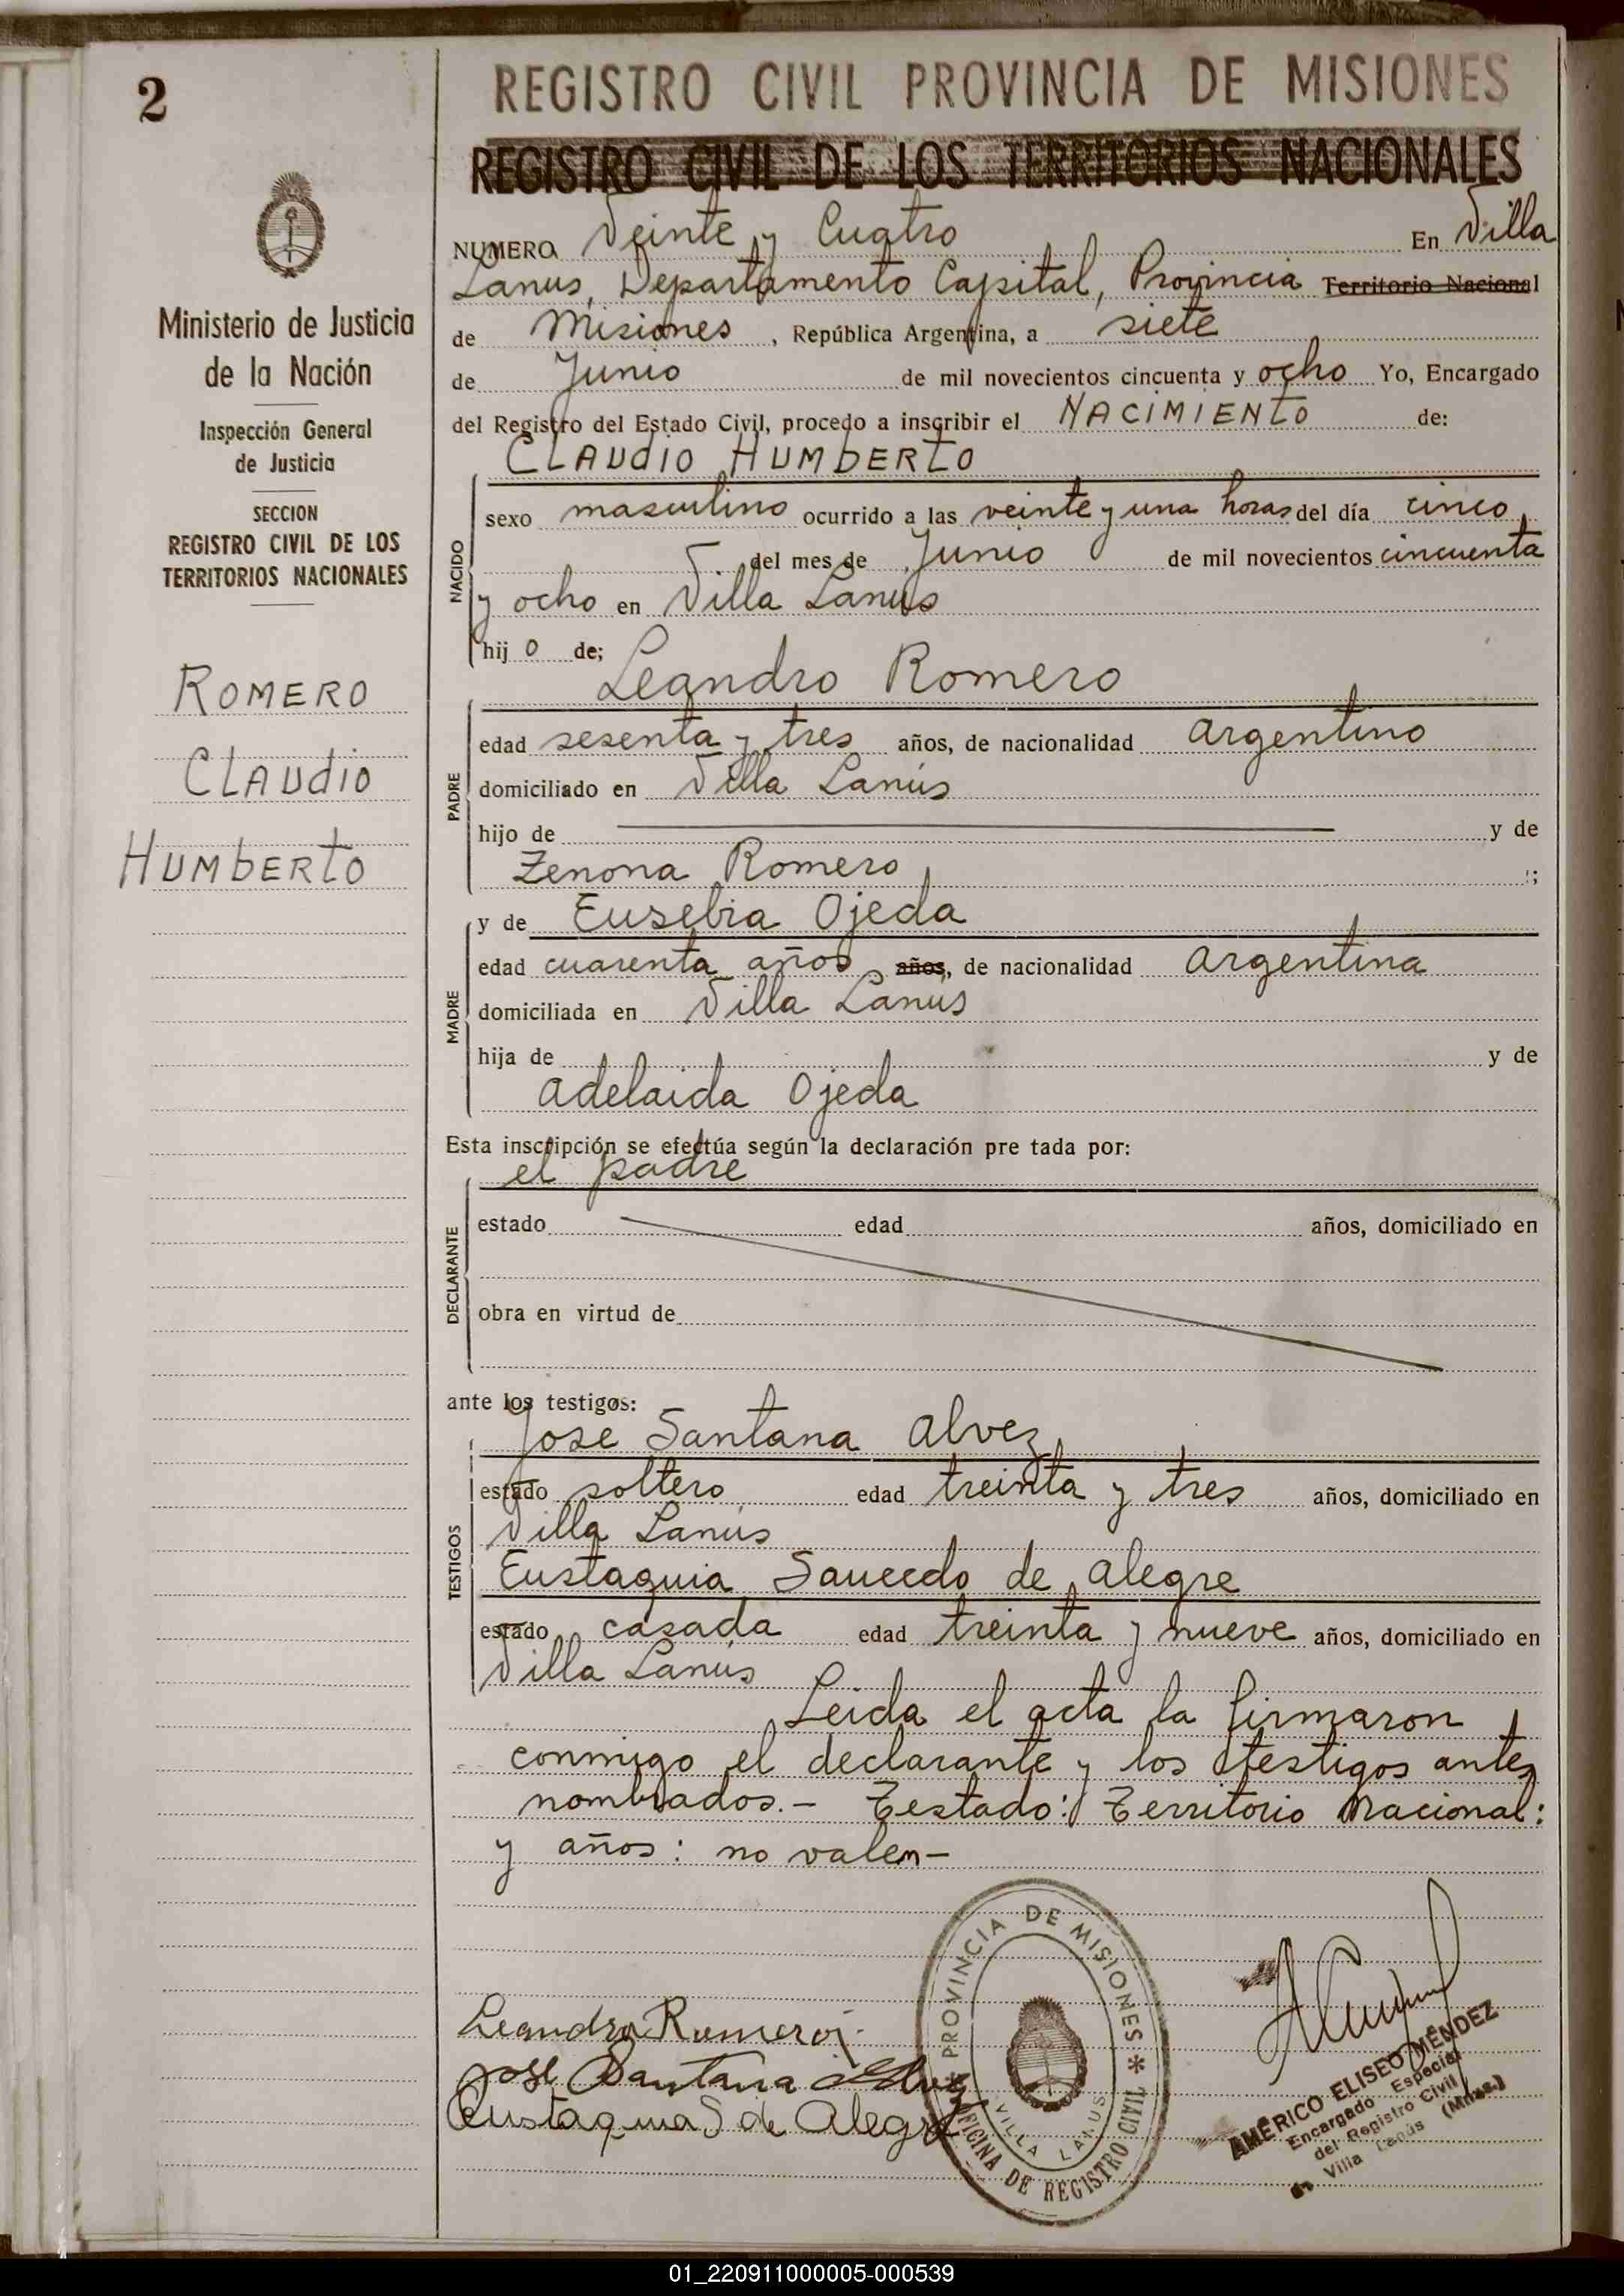 2
REGISTRO CIVIL PROVINCIA DE MISIONES
REGISTRO CIVIL DE LOS TERRITORIOS NACIONALES
Ministerio de Justicia
de la Nación
Inspección General
de Justicia
SECCION
REGISTRO CIVIL DE LOS
TERRITORIOS NACIONALES
ROMERO
CLAUdio
HUMbERto
NUMERO Veinte y Cuatro En Villa
Lanus, Departamento Capital, Provincia Territorio Nacional
de Misiones, República Argentina, a siete
de Junio de mil novecientos cincuenta y ocho Yo, Encargado
del Registro del Estado Civil, procedo a inscribir el NACIMIENTO de:
CLAUdIO HUMbERTO
NACIDO
sexo masculino ocurrido a las veinte y una horas del día cinco
del mes de Junio de mil novecientos cincuenta
y ocho en Villa Lanús
hij o de; Leandro Romero
PADRE
edad sesenta y tres años, de nacionalidad argentino
domiciliado en Villa Lanús
hijo de y de
Zenona Romero ;
y de Eusebia Ojeda
MADRE
edad cuarenta años años, de nacionalidad argentina
domiciliada en Villa Lanús
hija de y de
adelaida Ojeda
Esta inscripción se efectúa según la declaración pre tada por:
el padre
DECLARANTE
estado edad años, domiciliado en
obra en virtud de
ante los testigos:
Jose Santana alvez
TESTIGOS
estado soltero edad treinta y tres años, domiciliado en
Villa Lanús
Eustaquia Saucedo de alegre
estado casada edad treinta y nueve años, domiciliado en
Villa Lanús
Leida el acta la firmaron
conmigo el declarante y los testigos antes
nombrados.- Testado: Territorio Nacional:
y años: no valen-
Leandro Romero
Jose Santana Alvez
Eustaquia S de Alegre
PROVINCIA DE MISIONES *
OFICINA DE REGISTRO CIVIL
VILLA LANUS
AMÉRICO ELISEO MÉNDEZ
Encargado Especial
del Registro Civil
Villa Lanús (Mnes.)
01_220911000005-000539